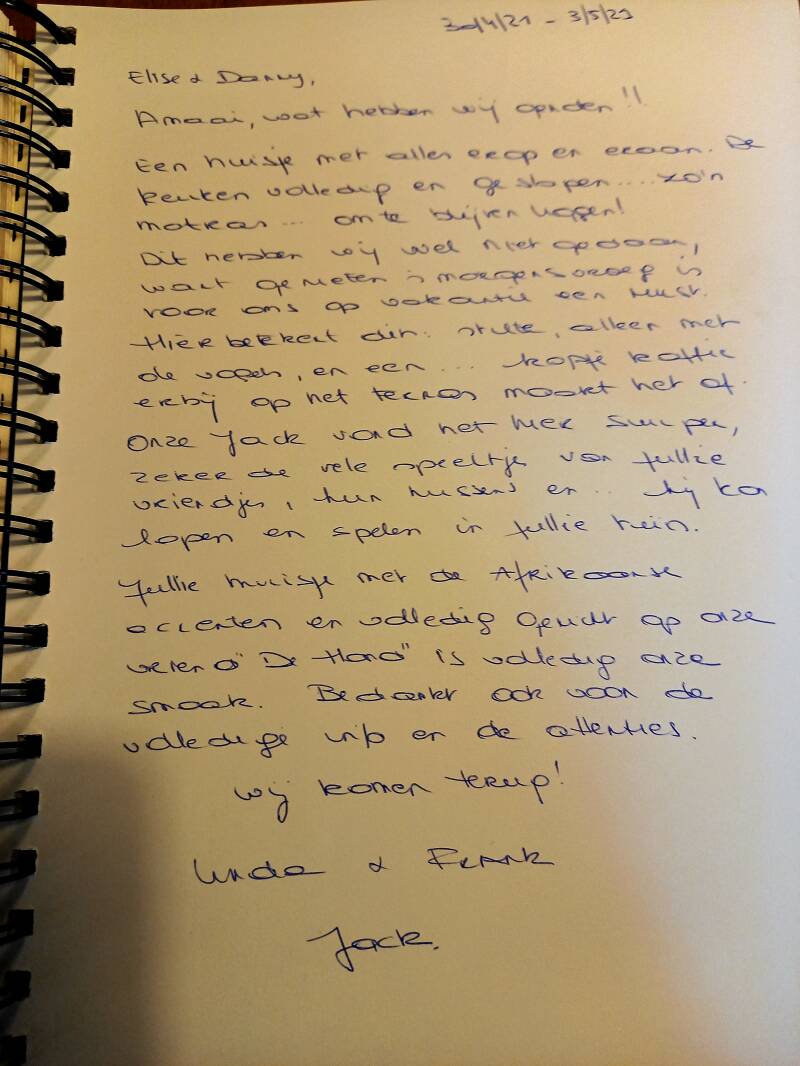 30/4/21 - 3/5/21
Elise & Danny,
Amaai, wat hebben wij
Een huisje met alles erop en eraan. De
keuken volledig en geslapen.... zo'n
matras... om te blijven liggen!
Dit hebben wij wel niet gedaan,
want genieten 's morgensvroeg is
voor ons op vakantie een must.
Hier betekent dit: stilte, alleen met
de vogels, en een ... kopje koffie
erbij op het terras maakt het af.
Onze Jack vond het hier super,
zeker de vele speeltjes van jullie
vriendjes, hun kussens en .. hij kon
lopen en spelen in jullie tuin.
Jullie huisje met de Afrikaanse
accenten en volledig gericht op onze
"De Hond" is volledig onze
smaak. Bedankt ook voor de
volledige info en de attenties.
Wij komen terug!
Linda & Frank
Jack.